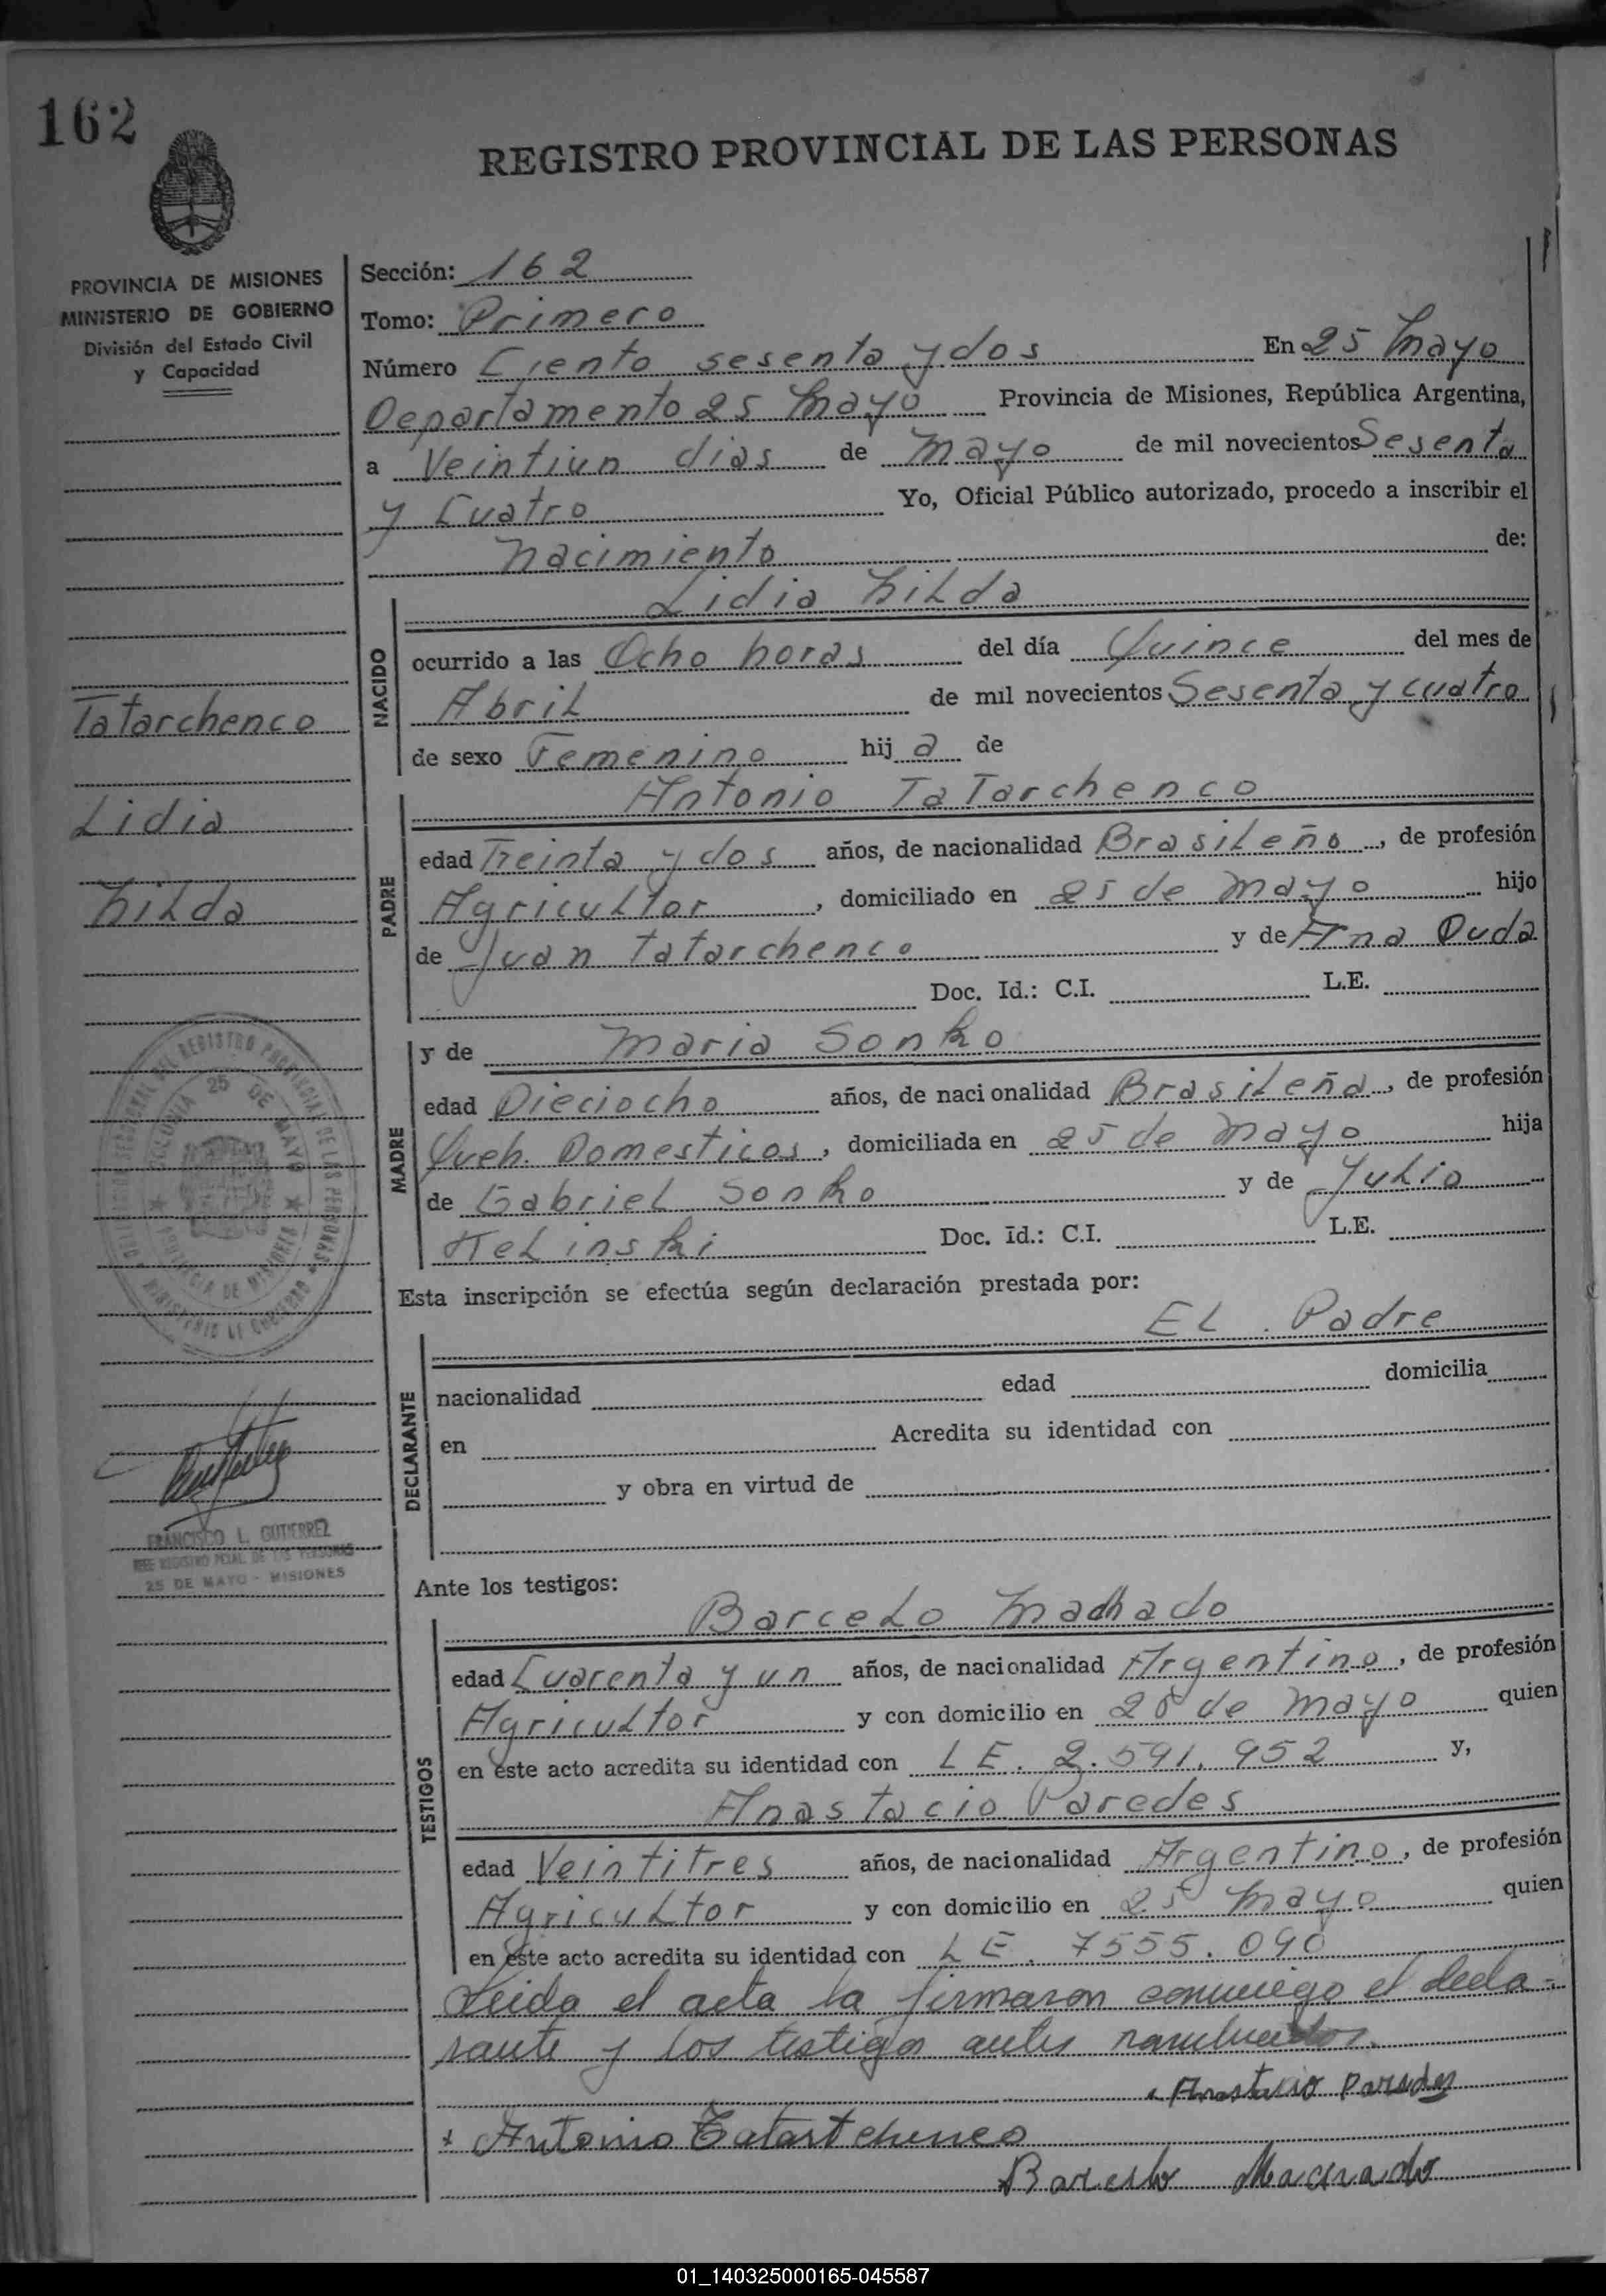 162
REGISTRO PROVINCIAL DE LAS PERSONAS
PROVINCIA DE MISIONES
MINISTERIO DE GOBIERNO
División del Estado Civil
y Capacidad
Tatarchenco
Lidia
hilda
REGISTRO PROVINCIAL DE LAS PERSONAS
COLONIA 25 DE MAYO
PROVINCIA DE MISIONES
MINISTERIO DE GOBIERNO
FRANCISCO L. GUTIERREZ
JEFE REGISTRO PCIAL. DE LAS PERSONAS
25 DE MAYO - MISIONES
Sección: 162
Tomo: Primero
Número Ciento sesenta y dos En 25 Mayo
Departamento 25 Mayo Provincia de Misiones, República Argentina,
a Veintiun dias de Mayo de mil novecientos Sesenta
y Cuatro Yo, Oficial Público autorizado, procedo a inscribir el
nacimiento de:
Lidia hilda
NACIDO
ocurrido a las Ocho horas del día Quince del mes de
Abril de mil novecientos Sesenta y cuatro
de sexo Femenino hij a de
Antonio Tatarchenco
PADRE
edad Treinta y dos años, de nacionalidad Brasileño, de profesión
Agricultor, domiciliado en 25 de Mayo hijo
de Juan Tatarchenco y de Ana Duda
Doc. Id.: C.I. L.E.
MADRE
y de Maria Sonko
edad Dieciocho años, de nacionalidad Brasileña, de profesión
Queh. Domesticos, domiciliada en 25 de Mayo hija
de Gabriel Sonko y de Julia
Kelinski Doc. Id.: C.I. L.E.
Esta inscripción se efectúa según declaración prestada por:
EL Padre
DECLARANTE
nacionalidad edad domicilia
en Acredita su identidad con
y obra en virtud de
Ante los testigos:
Barcelo Machado
TESTIGOS
edad Cuarenta y un años, de nacionalidad Argentino, de profesión
Agricultor y con domicilio en 25 de Mayo quien
en este acto acredita su identidad con LE. 2.591.952 y,
Anastacio Paredes
edad Veintitres años, de nacionalidad Argentino, de profesión
Agricultor y con domicilio en 25 Mayo quien
en este acto acredita su identidad con LE. 7555.090
Leida el acta la firmaron conmigo el decla-
rante y los testigos antes nombrados.
Anastacio Paredes
+ Antonio Tatartchenco
Barcelo Macrado
01_140325000165-045587